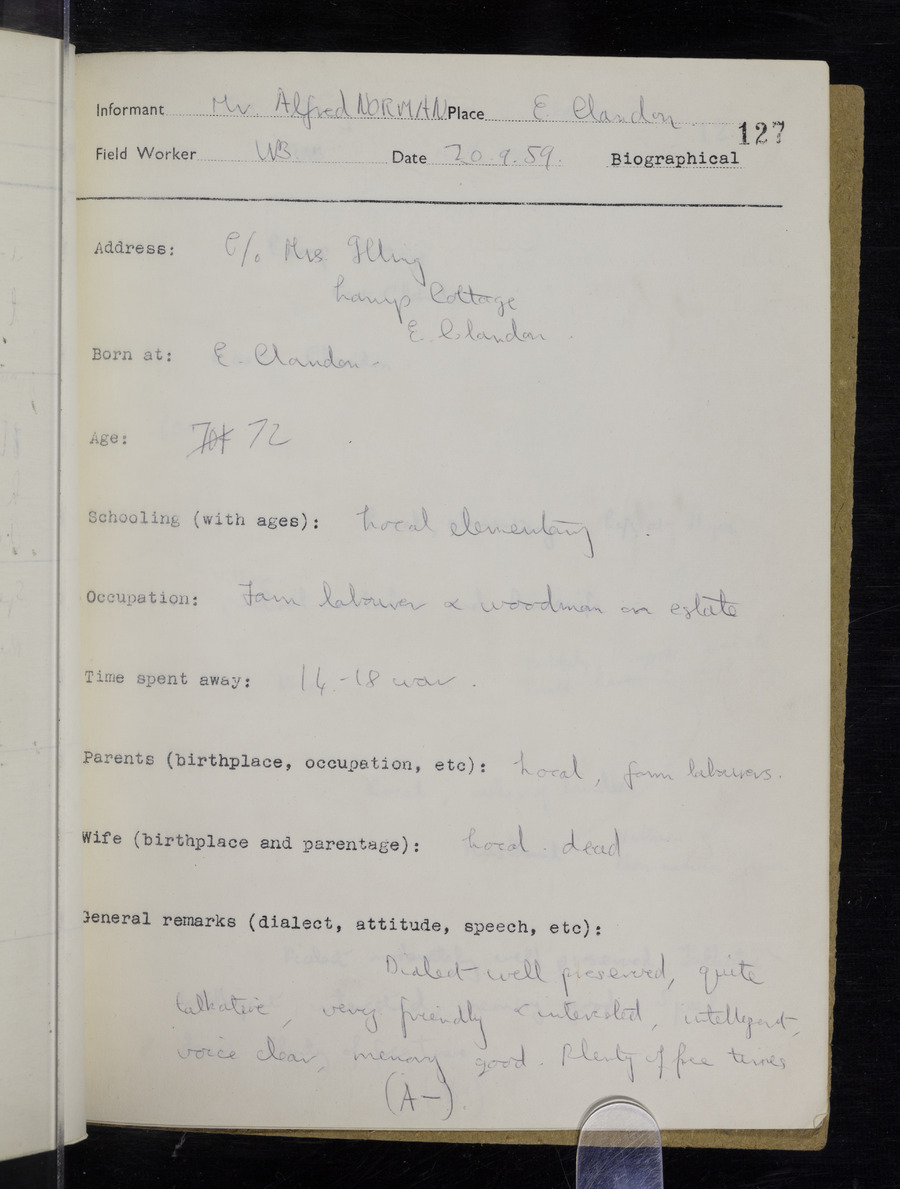 Informant Mr. Alfred NORMAN Place E. Clandon
127
Field Worker WB Date 20.9.59. Biographical
Address: C/o Mrs
Lamp Cottage
E. Clandon
Born at: E. Clandon
Age: 72
Schooling (with ages): Local elementary
Occupation: Farm labourer & woodman on estate
Time spent away: 14-18 war.
Parents (birthplace, occupation, etc): Local, farm labourers.
Wife (birthplace and parentage): Local. dead
General remarks (dialect, attitude, speech, etc):
Dialect well preserved, quite
talkative, very friendly & interested, intelligent,
voice clear, memory good. Plenty of free times
(A-).